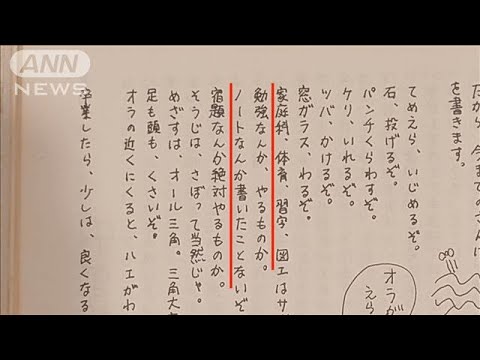 ANN
NEWS
だから、今までのさんに
を書きます。
てめえら、いじめるぞ。
石、投げるぞ。
パンチくらわすぞ。
ケリ、いれるぞ。
ツバ、かけるぞ。
窓ガラス、わるぞ。
家庭科、体育、習字、図エはサ
勉強なんか、やるものか。
ノートなんか書いたことないぞ
宿題なんか絶対やるものか。
そうじは、さぼって当然じゃ。
めざすは、オール三角。三角大
足も頭も、くさいぞ。
オラの近くにくると、ハエがわ
卒業したら、少しは、良くなる
オラが
えら